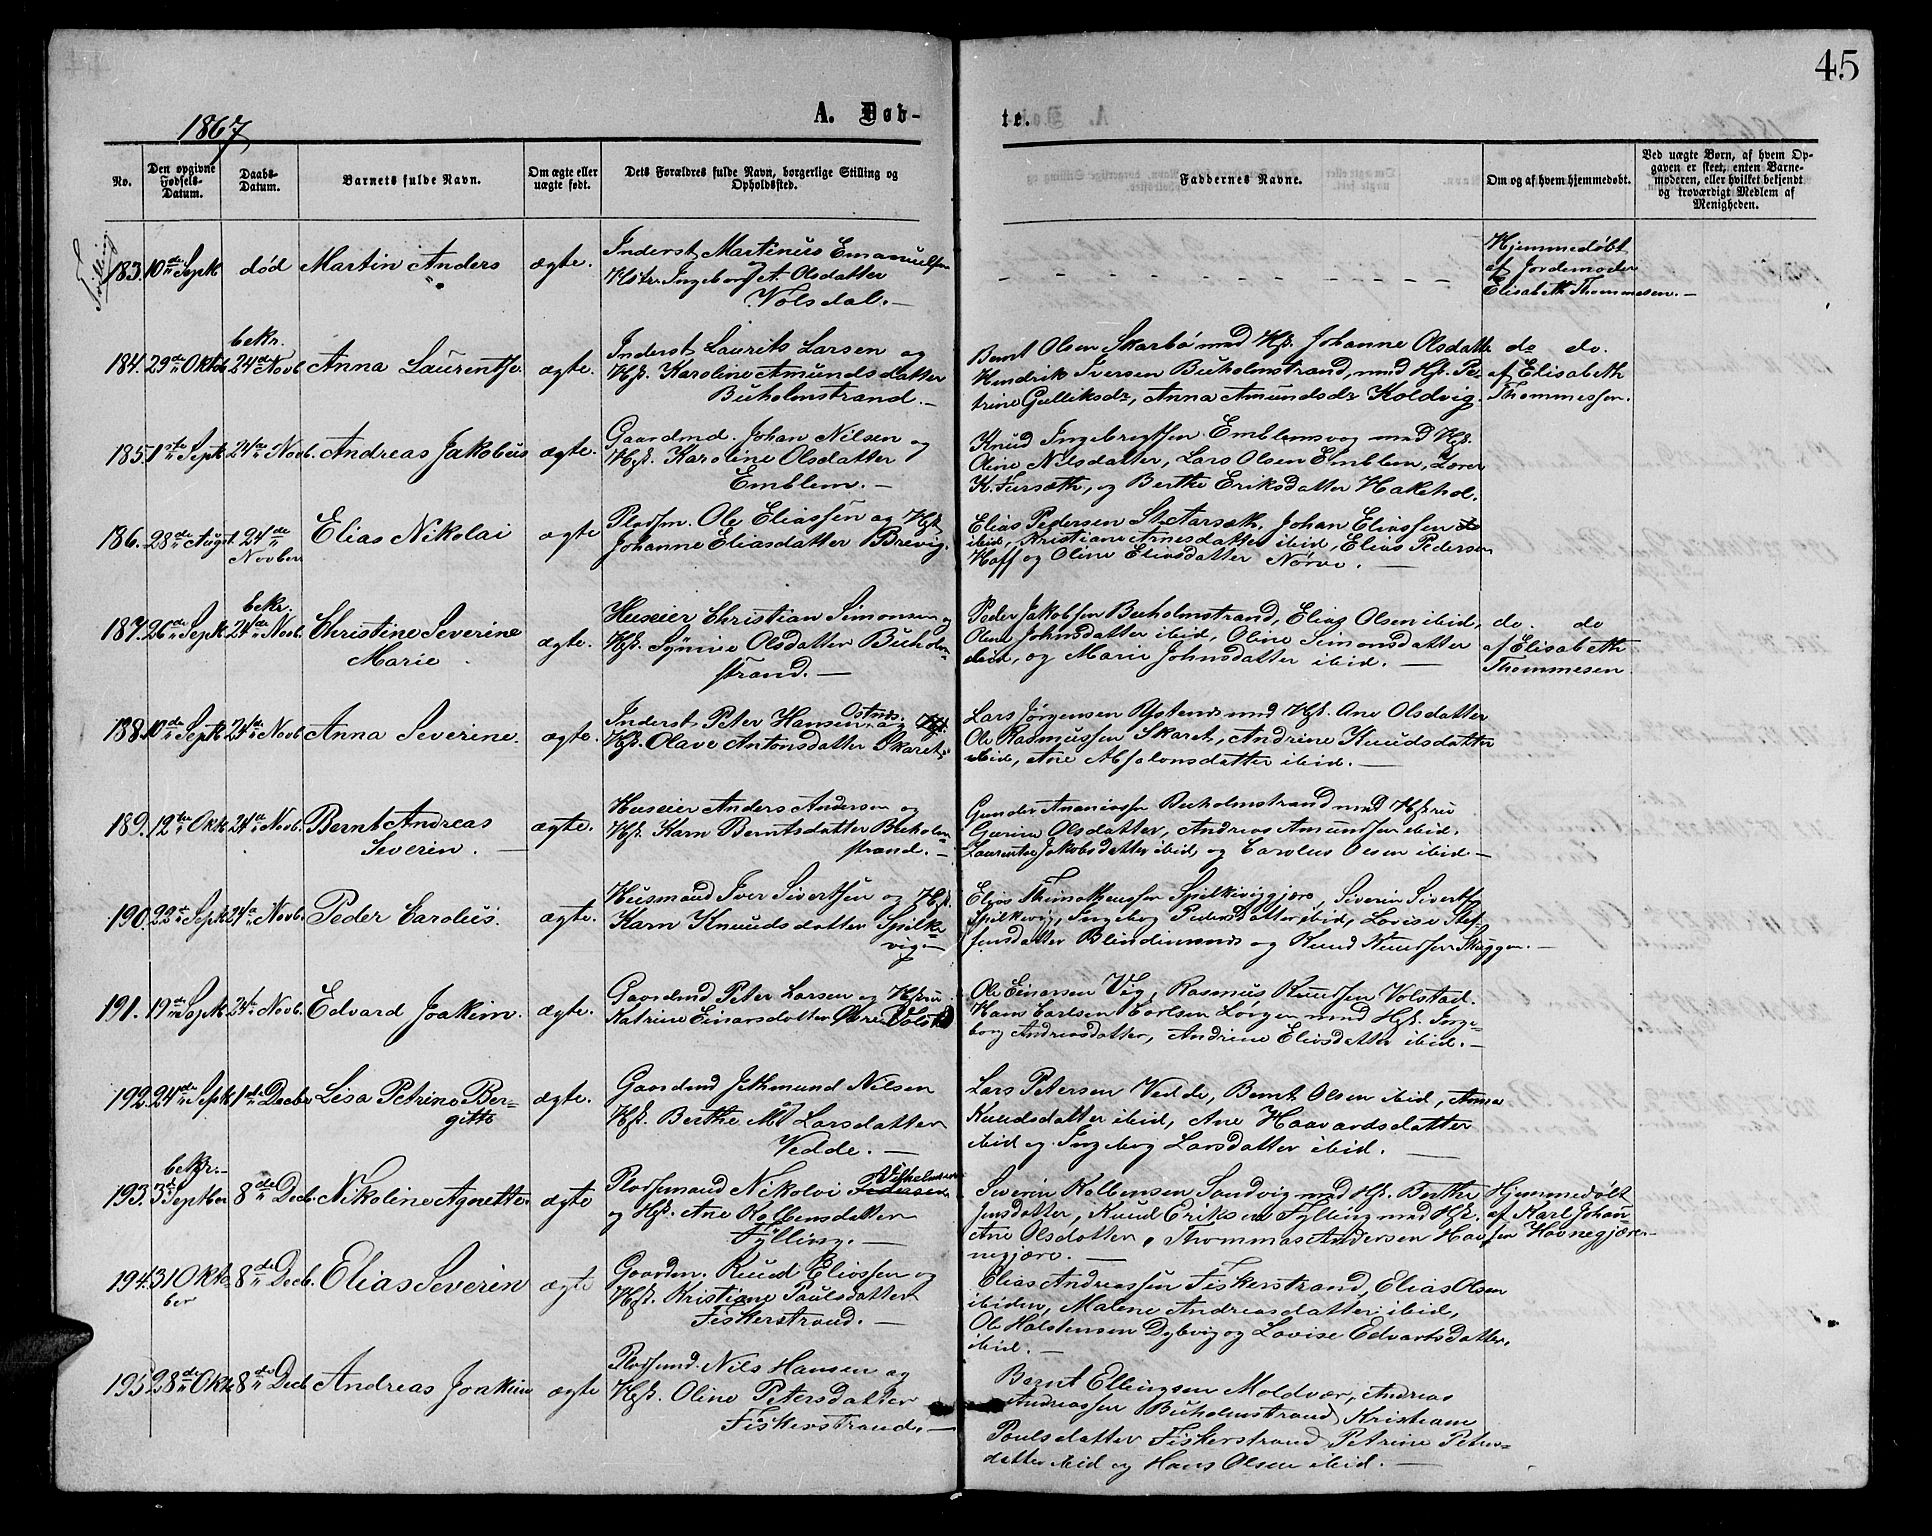 45
1867
A. Døb-
te.
No.
Den opgivne Fødsels-Datum.
Daabs-Datum.
Barnets fulde Navn.
Om ægte eller uægte født.
Dets Forældres fulde Navn, borgerlige Stilling og Opholdssted.
Faddernes Navne.
Om og af hvem hjemmedøbt.
Ved uægte Børn, af hvem Opgaven er skeet, enten Barnemoderen, eller hvilket bekjendt og troværdigt Medlem af Menigheden.
183. 10de Septb død Martin Anders ægte.
Inderst Martinus Emanuelsen
og
Hstr. Ingeborg A. Olsdatter
Volsdal. —
Hjemmedøbt
af Jordemoder
Elisabeth Thommesen. —
bekr.
184. 29de Oktb 24de Novb. Anna Laurentse. ægte.
Inderst Laurits Larsen og
Hgf. Karoline Amundsdatter
Buholmstrand. —
Bernt Olsen Skarbø med Hgf. Johanne Olsdatte
Hendrik Iversen Buholmstrand, med Hgf. Pe
trine Gulliksdr, Anna Amundsdr Koldvig.
do do.
af Elisabeth
Thommessen.
185. 1ste Septb 24de Novb. Andreas Jakobus ægte.
Gaardmd. Johan Nilsen og
Hgf. Karoline Olsdatter
Emblem. —
Knud Ingebrigtsen Emblemsvog med Hgf.
Oline Nilsdatter, Lars Olsen Emblem, Lærer
K. Fursæth, og Berthe Eriksdatter Hakehol.
186. 28de Augst 24de
Novber
Elias Nikolai ægte
Pladsm. Ole Eliassen og Hgf
Johanne Eliasdatter Brevig.
Elias Pedersen St. Aarsæth, Johan Eliassen
ibid, Kristiane Arnesdatter ibid, Elias Pedersen
Hoff og Oline Eliasdatter Nørve. —
bekr.
187. 26de Septb 24de Novb. Christine Severine
Marie
ægte.
Huseier Christian Simonsen og
Hgf. Synive Olsdatter Buholm-
strand. —
Peder Jakobsen Buholmstrand, Elias Olsen ibid,
Olena Johnsdatter ibid, Oline Simonsdatter
ibid, og Marie Johnsdatter ibid. —
do. do
af Elisabeth
Thommesen
188. 10de Septb 24de Novb. Anna Severine. ægte.
Inderst Peter Hansen Ostnes. og
Hgf. Olave Antonsdatter Skaret.
Lars Jørgensen med Hgf. Ane Olsdatter
Ole Rasmussen Skaret, Andrine Knudsdatter
ibid, Ane Absalonsdatter ibid. —
189. 12te Oktb 24de Novb. Bernt Andreas
Severin. —
ægte.
Huseier Anders Andersen og
Hgf. Karn Berntsdatter Buholm
strand. —
Gunder Ananiassen Buholmstrand med Hustru
Gurine Olsdatter, Andreas Amundsen ibid.
Laurentse Jakobsdatter ibid, og Carolus Olsen ibid —
190. 22de Septb 24de Novb. Peder Carolus. ægte.
Husmand Iver Sivertsen og Hgf.
Karn Knudsdatter Spilke-
vig —
Elias Thimotheussen Spilkeviggjære, Severin Sivertsen
Spilkevig, Ingeborg Pedersdatter ibid, Lovise Stef-
fensdatter Blindimsnes og Knud Knudsen Skuggen. —
191. 19de Septb 24de Novb. Edvard Joakim. ægte.
Gaardmd Peter Larsen og Hustru
Katrine Einarsdatter Volstad
Ole Einarsen Vig, Rasmus Knudsen Volstad.
Karn Carlsen Lorgen med Hgf. Inge-
borg Andreasdatter, Andrine Eliasdatter ibid. —
192. 24de Septb 1ste Decbr Lisa Petrine Ber-
gitte
ægte.
Gaardmd Jethmund Nilsen
og
Hgf. Berthe M. Larsdatter
Vedde. —
Lars Petersen Vedde, Bernt Olsen ibid, Anna
Knudsdatter ibid, Ane Haavardsdatter
ibid og Ingeborg Larsdatter ibid. —
bekr. —
193. 3de Septber 8de Decb. Nikoline Agnette. ægte
Pladsemand Nikolai Pedersen Vilhelmsen
og Hgf. Ane Kolbensdatter
Fylling. —
Severin Kolbensen Sandvig med Hgf. Berthe
Jensdatter, Knud Eriksen Fylling med Hgf.
Ane Olsdatter, Thommas Andersen Hav
negjære. —
Hjemmedøbt
af Karl Johan
sen Havnegjære
194. 31 Okto
ber
8de Decb. Elias Severin ægte
Gaardm. Knud Eliassen og
Hgf. Kristiane Paulsdatter
Fiskerstrand. —
Elias Andreassen Fiskerstrand, Elias Olsen
ibidem, Malene Andreasdatter ibid,
Ole Halstensen Dybvig og Lovise Edvartsdatter.
ibid. —
195. 28de Oktb 8de Decb. Andreas Joakim ægte
Pladsmd. Nils Hansen og
Hgf. Oline Petersdatter
Fiskerstrand. —
Bernt Ellingsen Moldvær, Andreas
Andreassen Buholmstrand, Kristiane
Poulsdatter Fiskerstrand, Petrine Peters-
datter ibid og Hans Olsen ibid. —